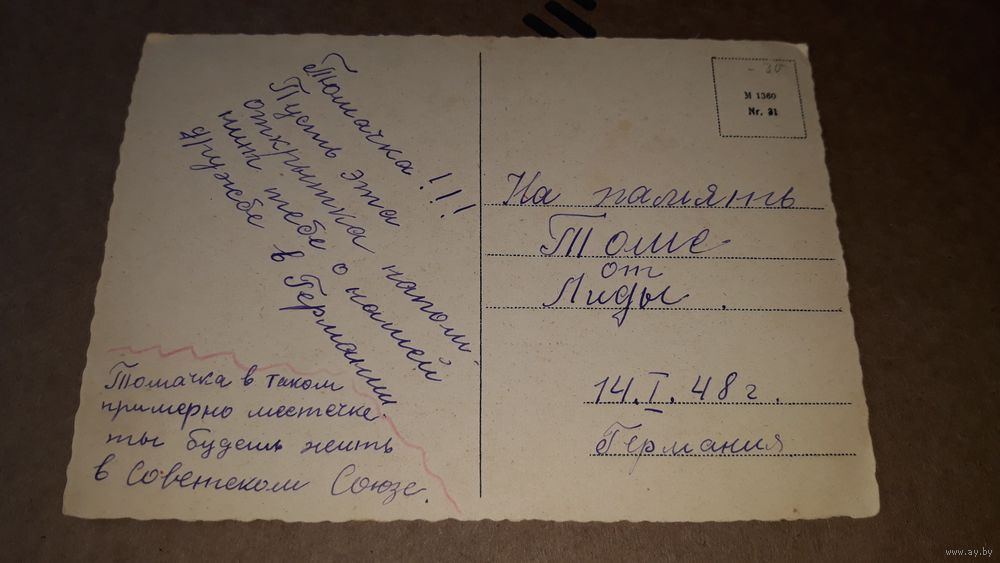 Томачка!!!
Пусть эта
открытка напом-
нит тебе о нашей
дружбе в Германии.
Томачка в таком
примерно местечке
ты будешь жить
в Советском Союзе.
- 30
M 1360
Nr. 31
На память
Томе
от
Лиды.
14.I.48 г.
Германия
www.ay.by